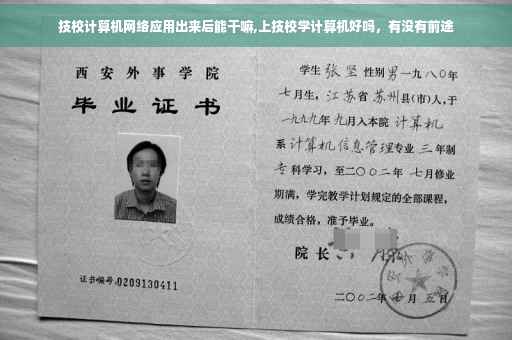 技校计算机网络应用出来后能干嘛,上技校学计算机好吗，有没有前途
西安外事学院
毕业证书
证书编号:0209130411
学生 张坚 性别 男 一九八〇年
七月生，江苏省 苏州县(市)人，于
一九九九年 九月入本院 计算机
系 计算机信息管理专业 三 年制
专 科学习，至二〇〇二年 七月修业
期满，学完教学计划规定的全部课程，
成绩合格，准予毕业。
院长
二〇〇二年 七 月 五 日